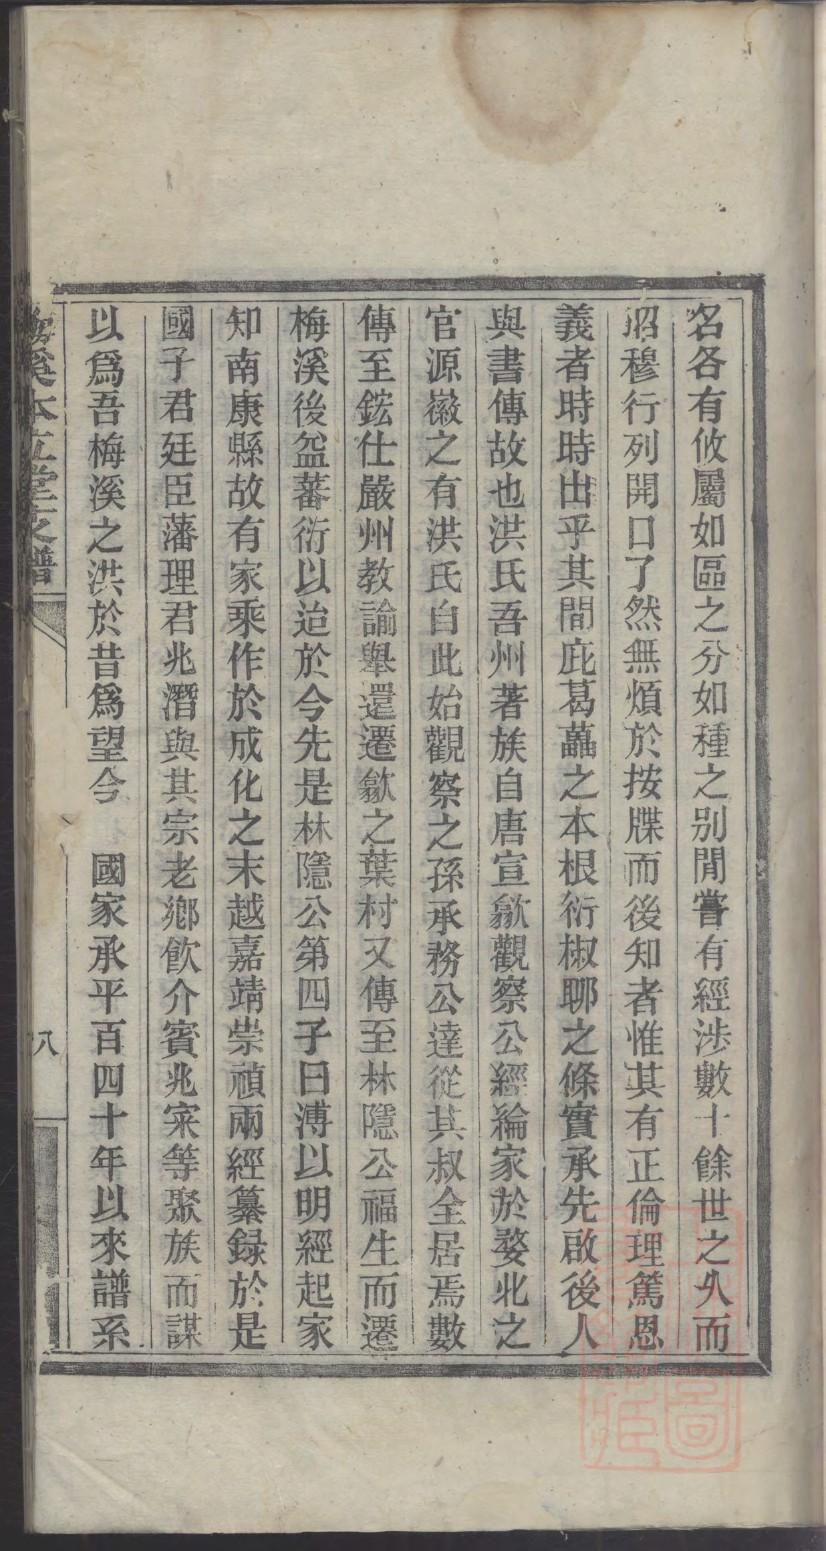 名各有攸屬如區之分如種之別閒嘗有經涉數十餘世之久而
昭穆行列開口了然無煩於按牒而後知者惟其有正倫理篤恩
義者時時出乎其間庇葛藟之本根衍椒聊之條實承先啟後人
與書傳故也洪氏吾州著族自唐宣歙觀察公經綸家於婺北之
官源徽之有洪氏自此始觀察之孫承務公達從其叔全居焉數
傳至鋐仕嚴州教諭舉還遷歙之葉村又傳至林隱公福生而遷
梅溪後益蕃衍以迨於今先是林隱公第四子曰溥以明經起家
知南康縣故有家乘作於成化之末越嘉靖崇禎兩經纂録於是
國子君廷臣藩理君兆潛與其宗老鄉飲介賓兆寀等聚族而謀
以爲吾梅溪之洪於昔爲望今　國家承平百四十年以來譜系
梅溪本立堂支譜
八